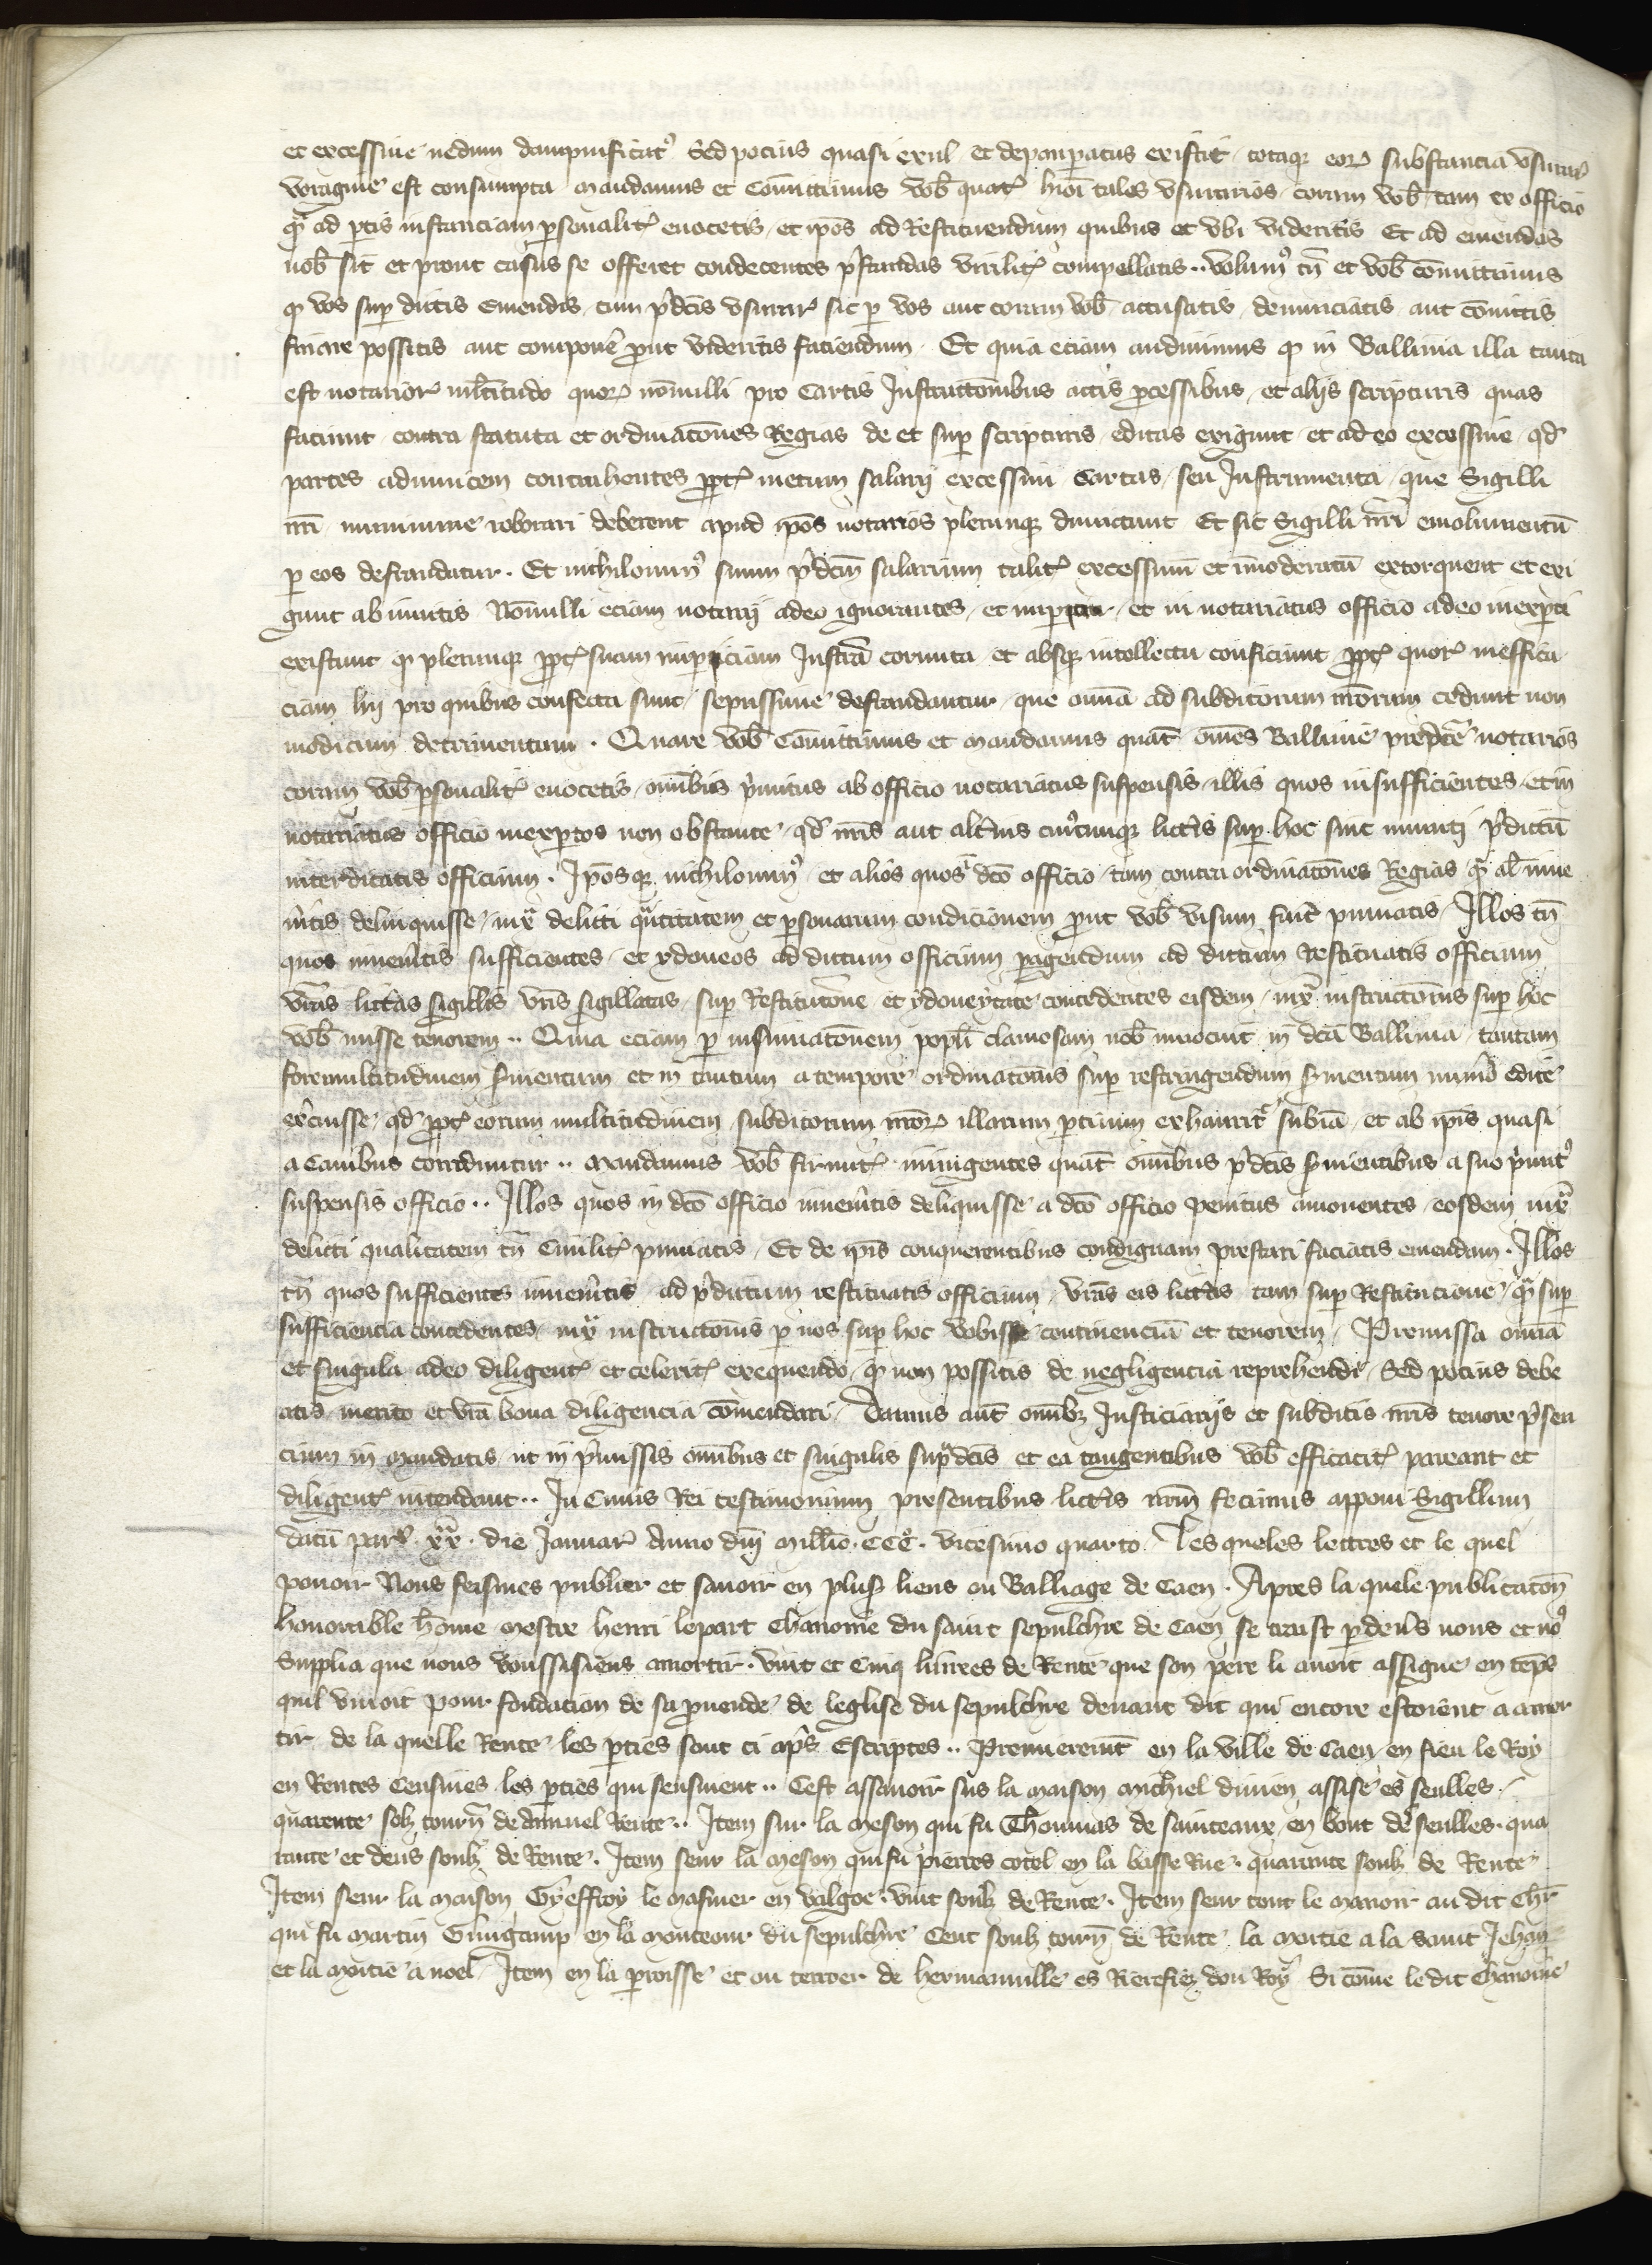 et excessive nedum dampnificatꝰ Sed pocius quasi exul et depauperatus existit totaqꝫ eoꝝ substancia vsuraꝝ
voragine est consumpta mandamus et Com̄ittimus vob̄ quatꝭ hiōi tales vsurarios coram vob̄ tam ex officio
qᵃ̄ ad ptis instanciam ꝑsonalitꝭ euocetis et ip̄os ad Restituendum quibus et vbi videritis Et ad emendas
nob̄ sit et prout casus se offeret condecentes p̄standas virilitꝭ compellatis ·· volumꝰ tn̄ et vob̄ com̄ittimus
ꝙ vos suꝑ dictis Emendis cum p̄dc̄is vsurarꝭ sic ꝑ vos aut coram vob̄ accusatis denunciatis aut conuictis
finare possitis aut componē ꝓut videritis faciendum · Et quia eciam audiuimus ꝙ in Balliuia illa tanta
est notarioꝝ ml̄titudo quoꝝ nōnulli pro Cartis Instructōnibus actis ꝓcessibus et alijs scripturis quas
faciunt contra statuta et ordinacōnes Regias de et suꝑ scripturis editas exigunt et adeo excessiue qd̄
partes adinuicem contrahentes ꝓptꝭ metum salarij excessiui Cartas seu Instrumenta que Sigilli
nr̄i munimine roborari deberent apud ip̄os notarios plerunqꝫ dimictunt Et sic Sigilli nr̄i emolumentū
ꝑ eos defraudatur · Et nichilominꝰ suum p̄dcm̄ salarium talitꝭ excessiuū et im̄oderatū extorquent et exi
gunt ab inuitis Nōnulli eciam notarij adeo ignorantes et et in notariatus officio adeo inexꝑti
existunt ꝙ plerunqꝫ ꝓptꝭ suam imꝑiciam Instrā cornuta et absqꝫ intellectu conficiunt ꝓptꝭ quoꝝ ineffica
ciam hij pro quibus confecta sunt sepissime defraudantur que om̄ia ad subditorum nr̄orum cedunt non
modicum detrimentum · Quare vob̄ Com̄ittimus et mandamus quat̄ om̄es Balliuie predc̄e notarios
coram vob̄ ꝑsonalitꝭ euocetis om̄ibus p̄mitus ab officio notariatus suspensis illis quos insufficientes et in
notariatus officio inexꝑtos non obstante qd̄ nr̄is aut alt̄ius cuiꝰcunqꝫ litt̄is suꝑ hoc sint muniti p̄dictū
interdicatis officium · Ip̄osqꝫ nichilominꝰ et alios quos ī dc̄o officio tam contra ordinacōnes Regias qᵃ̄ al̄ inue
nītis delinquisse iux̄ delicti qᵃntitatem et ꝑsonarum condicionem ꝓut vob̄ visum fuīt puniatis Illos tn̄
quos inuenītis sufficientes et ydoneos ad dictum officium ꝑagendum ad dictum Restituatis officium
vr̄as litt̄as sigillis vr̄is sigillatas suꝑ Restitucōne et ydoneytate concedentes eisdem iux̄ instructōnis suꝑ hoc
vob̄ misse tenorem ·· Quia eciam ꝑ insinuacōnem popli clamosam nob̄ innotuit in dcā Balliuia tantam
fore multitudinem ẜuientum et in tantum a tempore ordinacōnis suꝑ restringendum ẜuientum numō edite
ex̄cuisse qd̄ ꝓptꝭ eorum multitudinem subditorum nr̄oꝝ illarum ꝑtium exhauritꝭ subīā et ab ip̄is quasi
a Canibus corrodūntur ·· mandamus vob̄ firmitꝭ iniungentes quat̄ om̄ibus p̄dc̄is ẜuientibus a suo p̄mitꝰ
suspensis officio ·· Illos quos in dc̄o officio inuenītis deliquisse a dc̄o officio penitus amouentes eosdem iux̄
delicti qualitatem tn̄ Ciuilitꝭ puniatis Et de ip̄is conquerentibus condignam prestari faciatis emendam · Illos
tn̄ quos sufficientes inuenītis ad p̄dictum restituatis officium vr̄as eis litt̄as tam suꝑ Restitucione qᵃ̄ suꝑ
sufficiencia concedentes iux̄ instructōnis ꝑ nos suꝑ hoc vobis continenciā et tenorem Premissa om̄ia
et singula adeo diligentꝭ et celeritꝭ exequendo ꝙ non possitis de negligencia reprehendi Sed pocius debe
atis merito et vr̄a bona diligencia com̄endari Damus aut̄ om̄ibꝫ Iusticiarijs et subditis nr̄is tenore p̄sen
cium in mandatis ut in p̄missis om̄ibus et singulis supᵃdc̄is et ea tangentibus vob̄ efficacitꝭ pareant et
diligentꝭ intendant ·· In Cuius Rei testimonium presentibus litt̄is nr̄m fecimus apponi Sigillum
datū parꝭ · xxᵃ · die Januarꝭ Anno dn̄i mill̄io · CCC° · vicesimo quarto Les queles lettres et le quel
pouoir Nous feismes publier et sauoir en plusꝭ lieus ou Balliage de Caen · Apres la quele publicacōn
honorable hom̄e mestre henri lepart Chanoine du saint sepulchre de Caen se trast ꝑ deuꝭs nous et noꝰ
Supplia que nous vousissiens amortir · vint et Cinq liurees de Rente que son pere li auoit assigne en tēps
quil viuoit pour fondacion de sa ꝓuende de leglise du sepulchre deuant dit qui encore estoient a amor
tir de la quelle Rente les ꝑties sont ci apꝭs Escriptes ·· Premierenit̄ en la ville de Caen en fieu le Roy
en Rentes Censiues les ꝑties qui sensuient ·· Cest assauoir sus la maison michiel diuien assise es seulles
quarente solꝫ tourn̄ de annuel Rente ·· Item sur la meson qui fu Thoumas de sainteaux en bout des seulles · qua
rante et deus soulꝫ de Rente · Item seur la meson qui fu pierres cotel en la basse Rue · quarante soulꝫ de Rente
Item seur la maison Gyeffroy le masuier en valgoe · vint soulꝫ de Rente · Item seur tout le manoir au dit Chr̄
qui fu martin Guingamp en la monteour du sepulchre Cent soulꝫ tourn̄ de Rente la moitie a la saint Jehan
et la moitie a noel Item en la ꝑroisse et ou terroer de hermanuille es Rierefiez dou Roy Si com̄e ledit chanoine